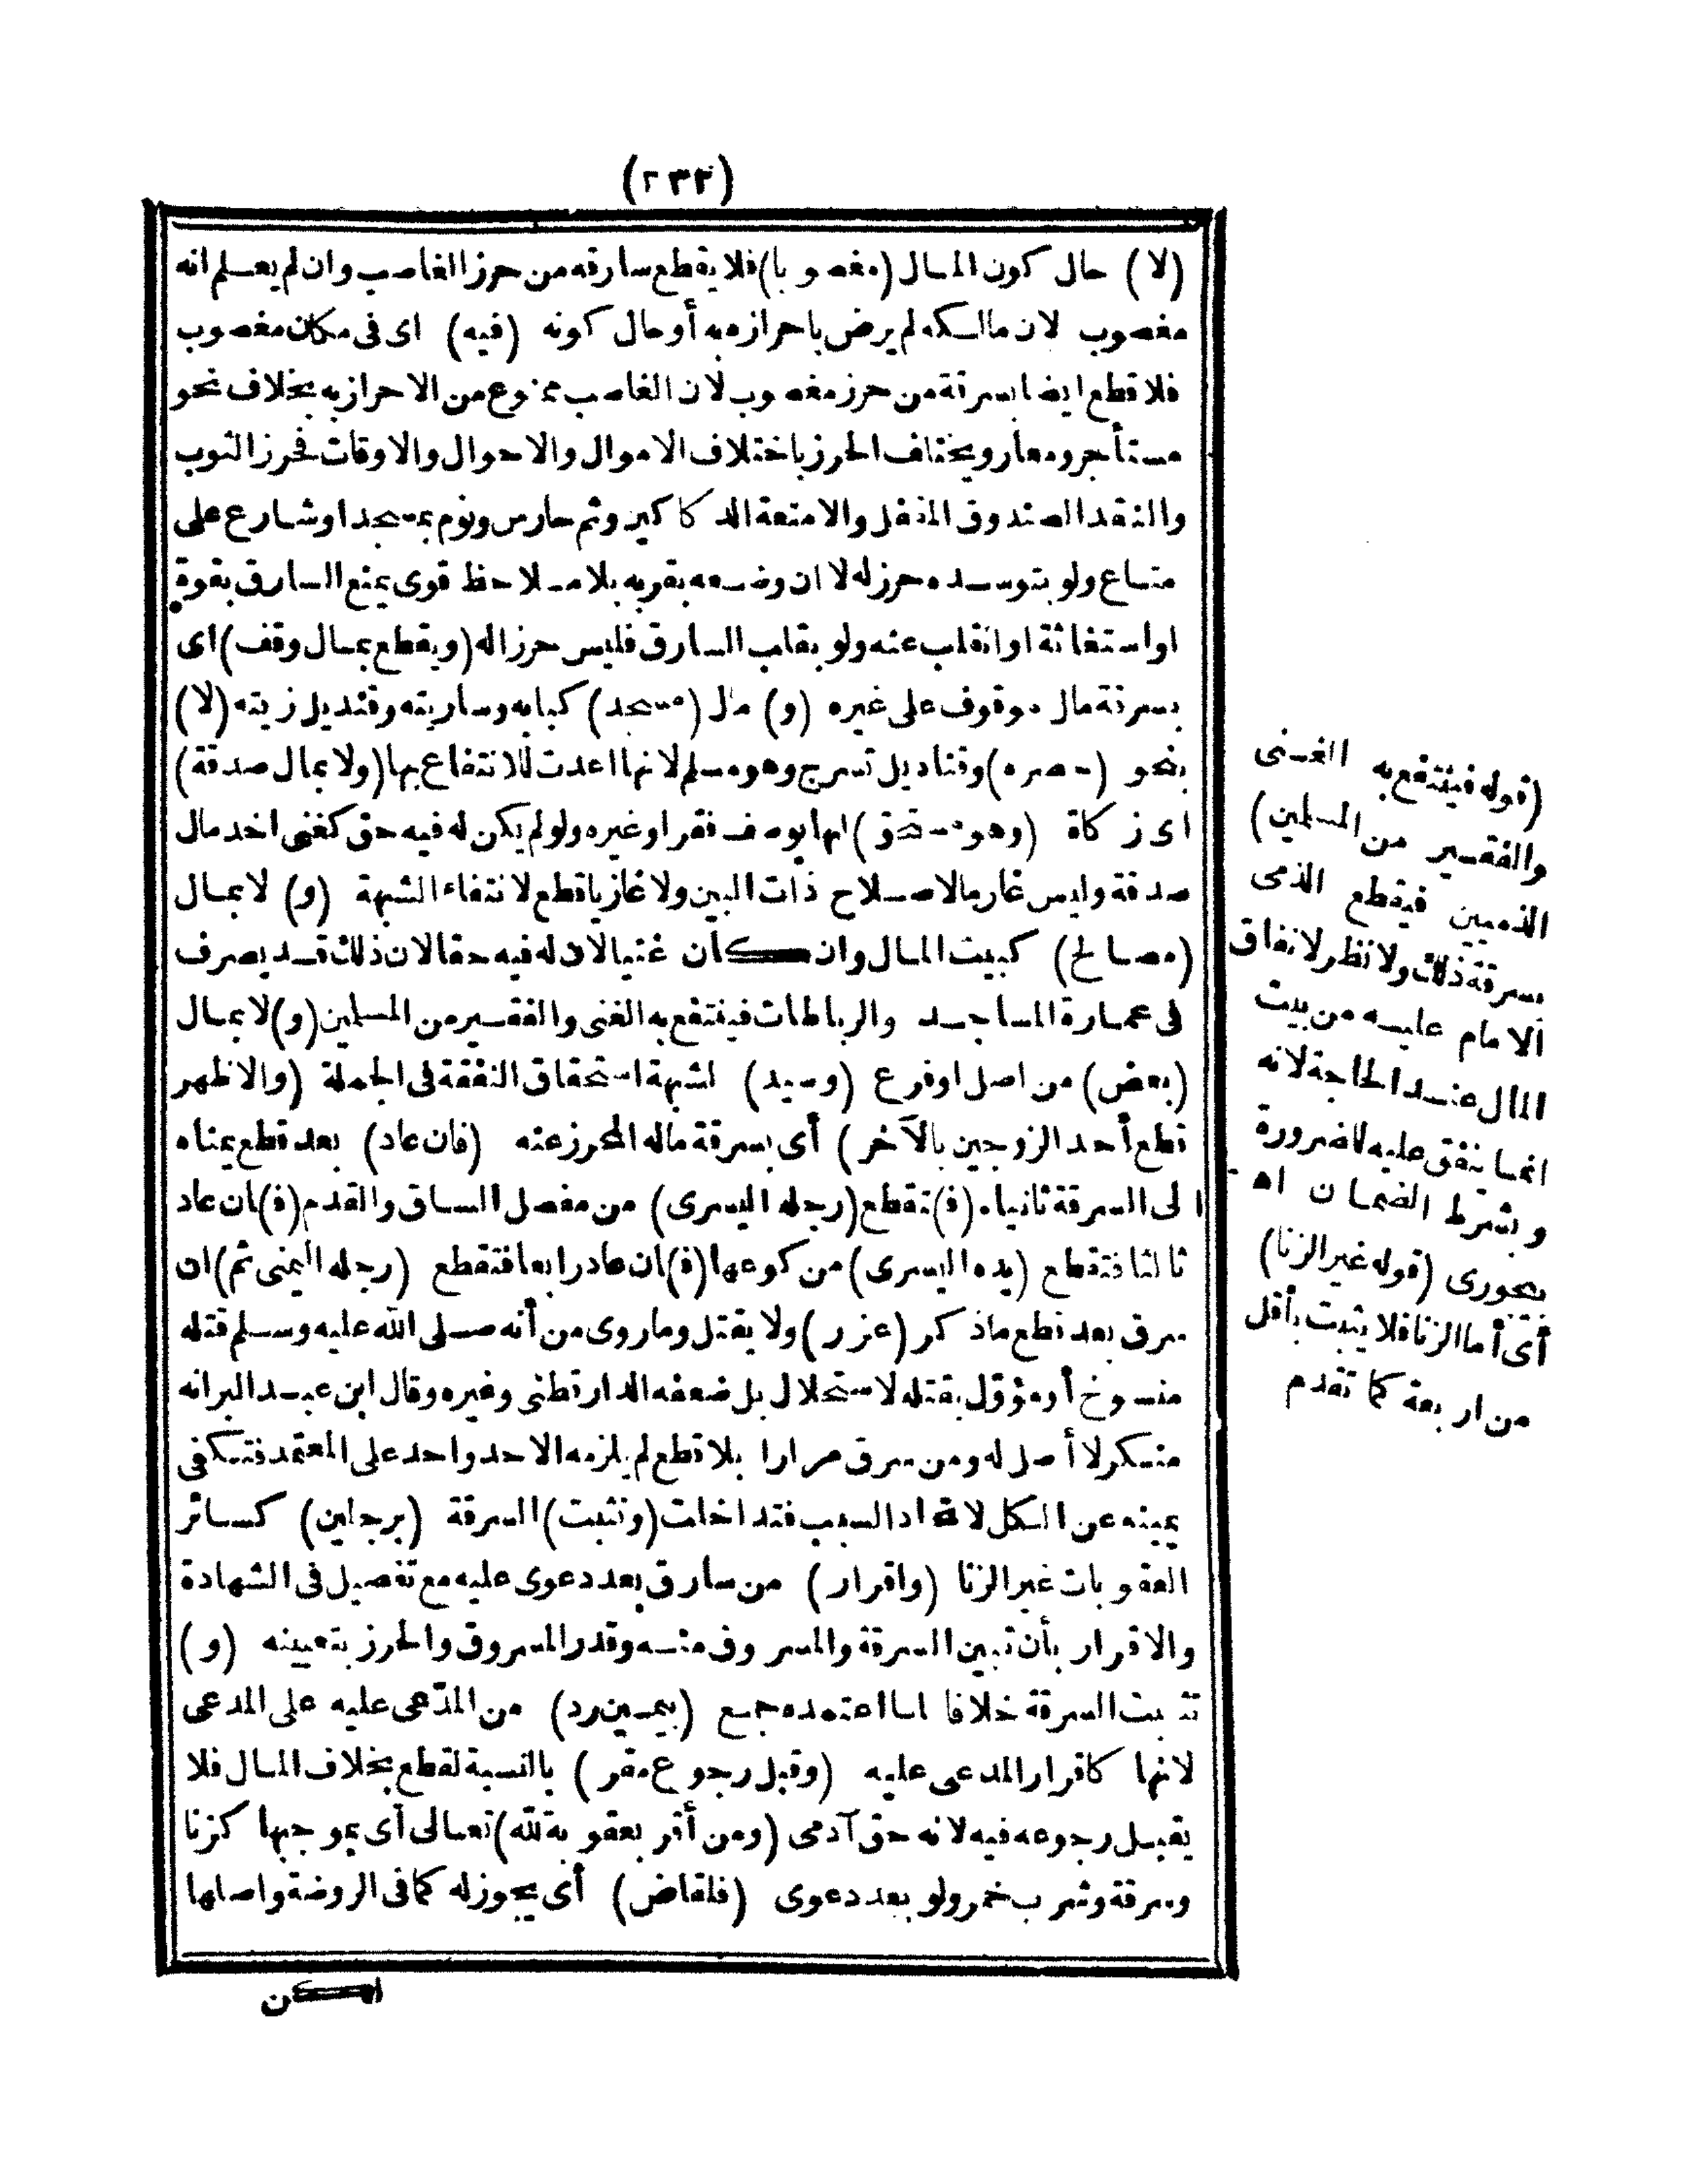 (٢٣٣)
(لا) حال كون المال (مغصوبا) فلا يقطع سارقه من حرز الغاصب وان لم يعلم انه
مغصوب لان مالكه لم يرض باحرازه به أو حال كونه (فيه) اى فى مكان مغصوب
فلا قطع ايضا بسرقة من حرز مغصوب لان الغاصب ممنوع من الاحراز به بخلاف نحو
مستأجر ومعار ويختلف الحرز باختلاف الاموال والاحوال والاوقات فحرز الثوب
والنقد الصندوق المقفل والامتعة الدكاكين وثم حارس ونوم بمسجد او شارع على
متاع ولو بتوسده حرز له لا ان وضعه بقربه بلا ملاحظ قوى يمنع السارق بقوة
او استغاثة او انقلب عنه ولو بقلب السارق فليس حرزا له (ويقطع بمال وقف) اى
بسرقة مال موقوف على غيره (و) مال (مسجد) كبابه وساريته وقنديل زينته (لا)
بنحو (حصره) وقناديل تسرج وهو مسلم لانها اعدت للانتفاع بها (ولا بمال صدقة)
اى زكاة (وهو مستحق) لها بوصف فقر او غيره ولو لم يكن له فيه حق كغنى اخذ مال
صدقة وليس غارما لاصلاح ذات البين ولا غازيا قطع لانتفاء الشبهة (و) لا بمال
(مصالح) كبيت المال وان كان غنيا لان له فيه حقا لان ذلك قد يصرف
فى عمارة المساجد والرباطات فينتفع به الغنى والفقير من المسلمين (و) لا بمال
(بعض) من اصل او فرع (وسيد) لشبهة استحقاق النفقة فى الجملة (والاظهر
قطع أحد الزوجين بالآخر) أى بسرقة ماله المحرز عنه (فان عاد) بعد قطع يمناه
الى السرقة ثانيا (ف) تقطع (رجله اليسرى) من مفصل الساق والقدم (ف) ان عاد
ثالثا فتقطع (يده اليسرى) من كوعها (ف) ان عاد رابعا فتقطع (رجله اليمنى ثم) ان
سرق بعد قطع ما ذكر (عزر) ولا يقتل وما روى من أنه صلى الله عليه وسلم قتله
منسوخ أو مؤول بقتله لاستحلال بل ضعفه الدارقطنى وغيره وقال ابن عبد البر انه
منكر لا أصل له ومن سرق مرارا بلا قطع لم يلزمه الا حد واحد على المعتمد فتكفى
يمينه عن الكل لاتحاد السبب فتداخلت (وتثبت) السرقة (برجلين) كسائر
العقوبات غير الزنا (واقرار) من سارق بعد دعوى عليه مع تفصيل فى الشهادة
والاقرار بأن تبين السرقة والمسروق منه وقدر المسروق والحرز بتعيينه (و)
تثبت السرقة خلافا لما اعتمده جمع (بيمين رد) من المدّعى عليه على المدعى
لانها كاقرار المدعى عليه (وقبل رجوع مقر) بالنسبة لقطع بخلاف المال فلا
يقبل رجوعه فيه لانه حق آدمى (ومن أقر بعقوبة لله) تعالى أى بموجبها كزنا
وسرقة وشرب خمر ولو بعد دعوى (فلقاض) أى يجوز له كما فى الروضة واصلها
لكن
(قوله فينتفع به الغنى
والفقير من المسلمين)
الذميين فيقطع الذمى
بسرقة ذلك ولا نظر لانفاق
الامام عليه من بيت
المال عند الحاجة لانه
انما ينفق عليه للضرورة
وبشرط الضمان اه
بجورى (قوله غير الزنا)
أى أما الزنا فلا يثبت بأقل
من اربعة كما تقدم